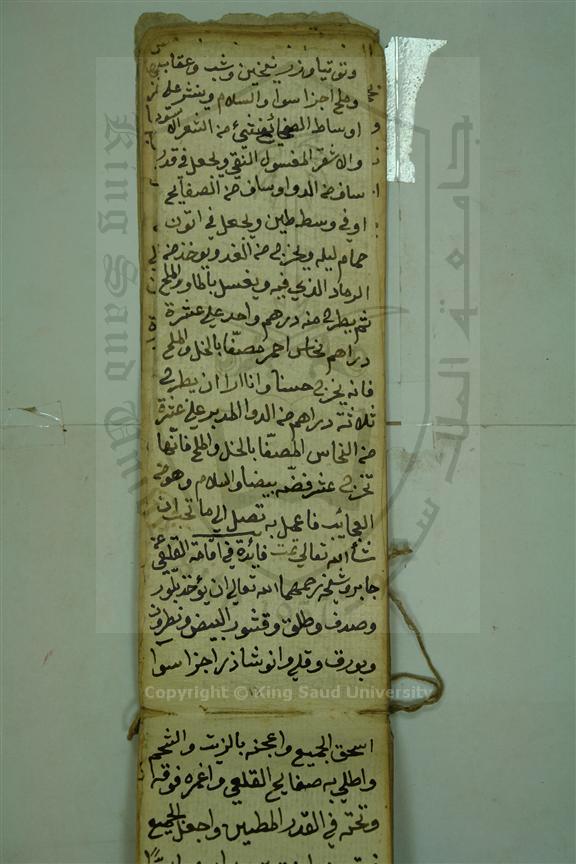 وتوتيا وزرنيخين وشب وعقاب
وملح اجزا سوا والسلام وينثر على
اوساط الصفايح شئ من الشعر الاسود
والاشقر المغسول النقي ويجعل في قدر
ساف من الدوا وساف من الصفايح
اوفي وسط طين ويجعل في اتون
حمام ليله ويخرج من الغد ويوخذ من
الرماد الذي فيه ويغسل بالماء والملح
ثم يطرح منه درهم واحد على عشرة
دراهم نحاس احمر مصفا بالخل والملح
فانه يخرج حسنا وان اراد ان يطرح
ثلاثة دراهم من الدوا المدبر على عشرة
من النحاس المصفا بالخل والملح فانها
تخرج عشر فضه بيضا والسلام وهو من
العجايب فاعمل به تصل الى ما تحب ان
شا الله تعالى تمت فايدة في اقامة القلعي عن
جابر وشيخه رحمهما الله تعالى ان يؤخذ بلور
وصدف وطلق وقشور البيض ونطرون
وبورق وقلي وانوشاذر اجزا سوا
اسحق الجميع واعجنه بالزيت والشحم
واطلي به صفايح القلعي واغمره فوقه
وتحته في القدر المطين واجعل الجميع
Copyright © King Saud University
King Saud University
جامعة الملك سعود